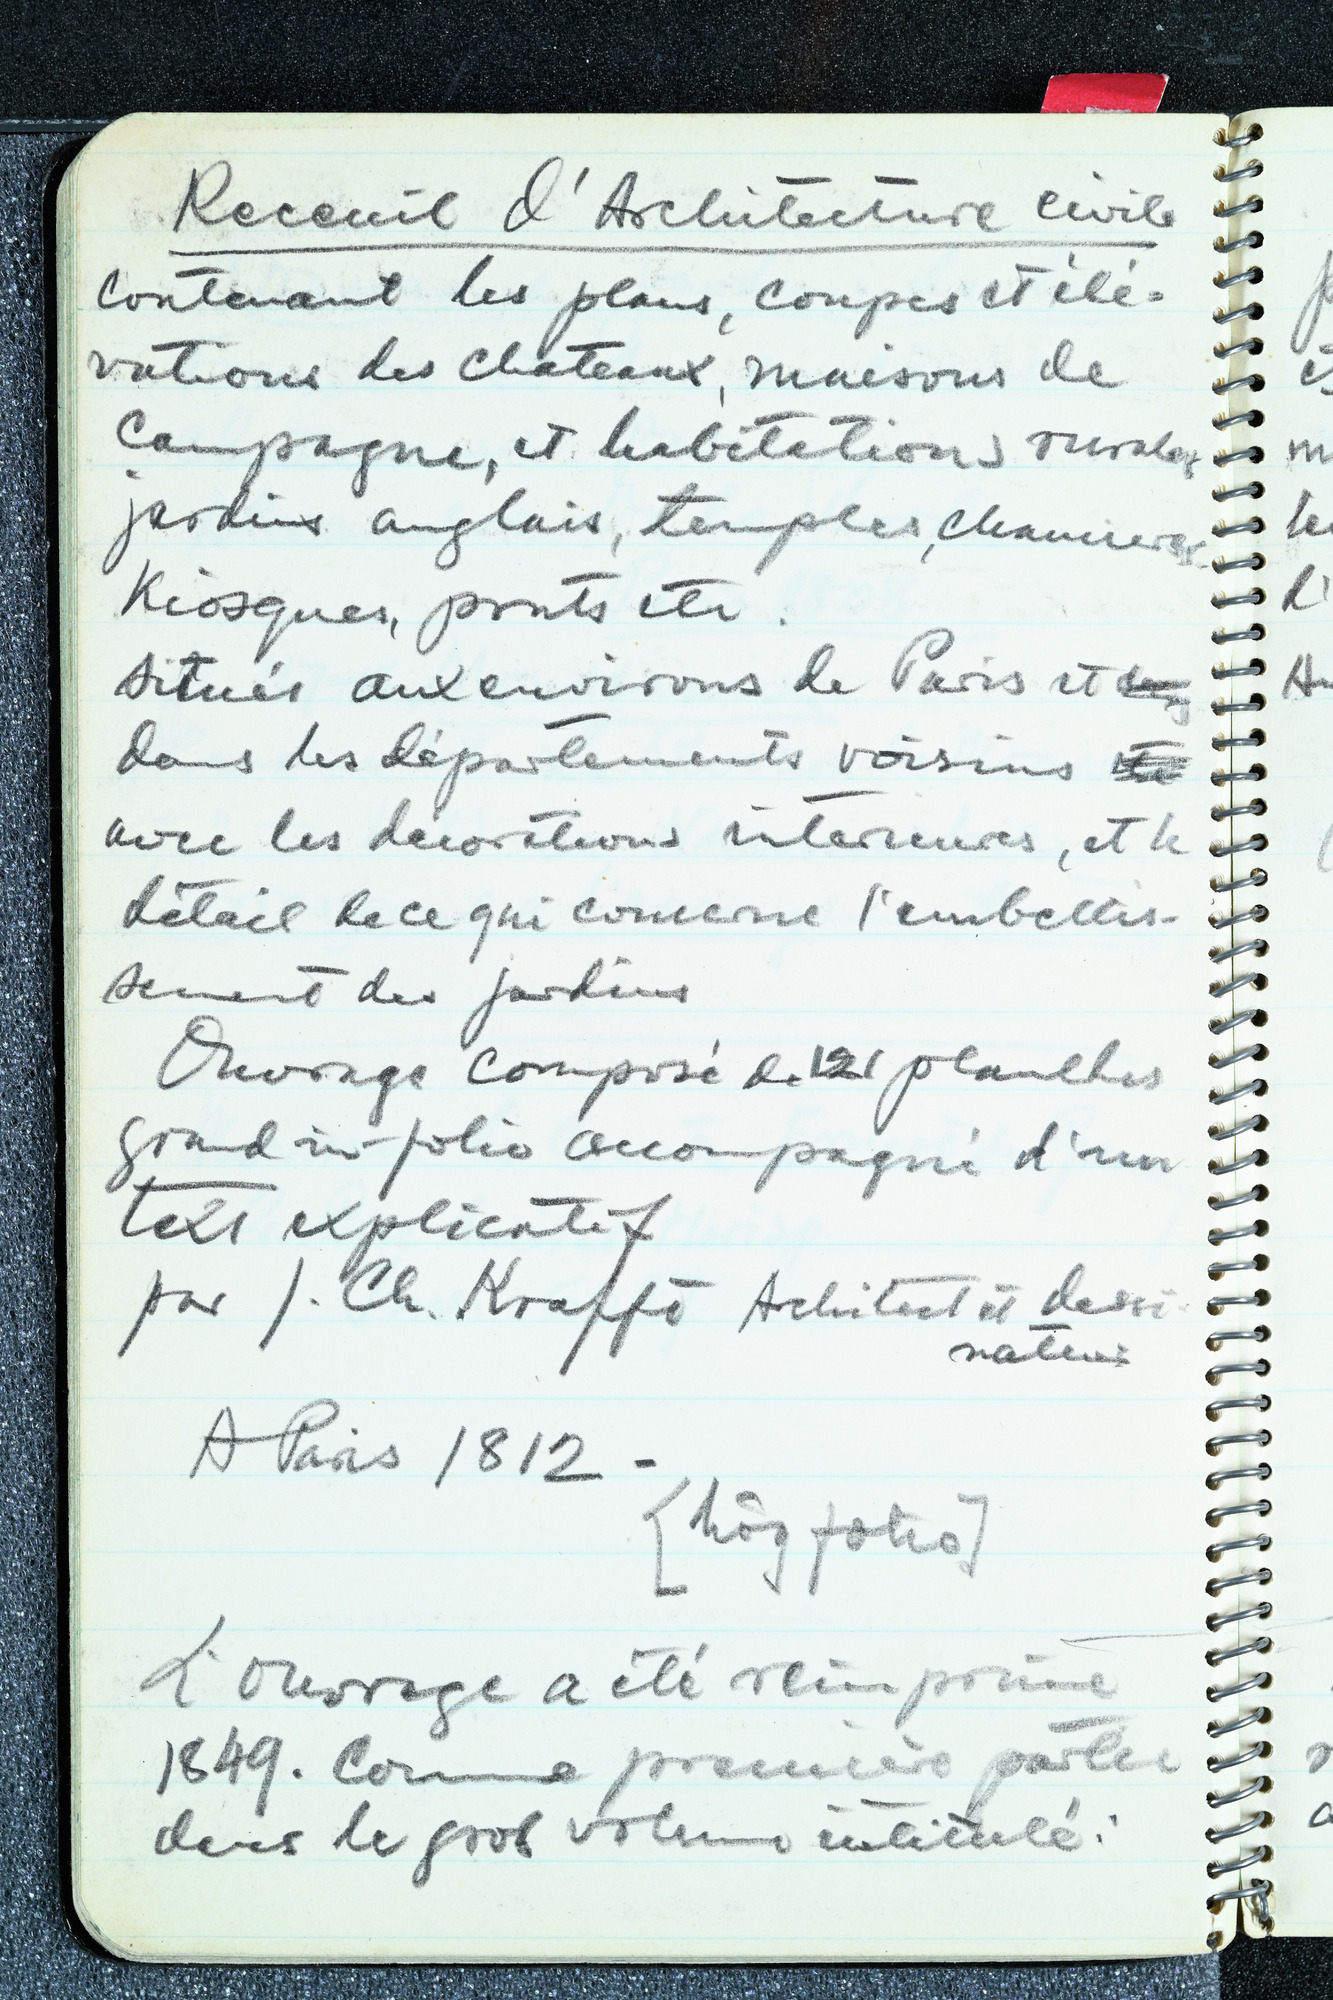 Receuil d'Architecture civile
contenant les plans, coupes et élé-
vations des chateaux, maisons de
campagne, et habitations rurales
jardins anglais, temples, chaumieres
Kiosques, ponts etc.
situés aux environs de Paris et
dans les départements voisins
avec les decorations interieures, et le
détail de ce qui concerne l'embellis-
sement des jardins
Ouvrage composé de 121 planches
grand in-folio accompagné d'un
text explicatif
par J. Ch. Krafft Architect et dessi-
nateur
A Paris 1812 -
[hög folio]
L'ouvrage a été reimprimé
1849. Comme première partie
dans le gros volume intitulé: